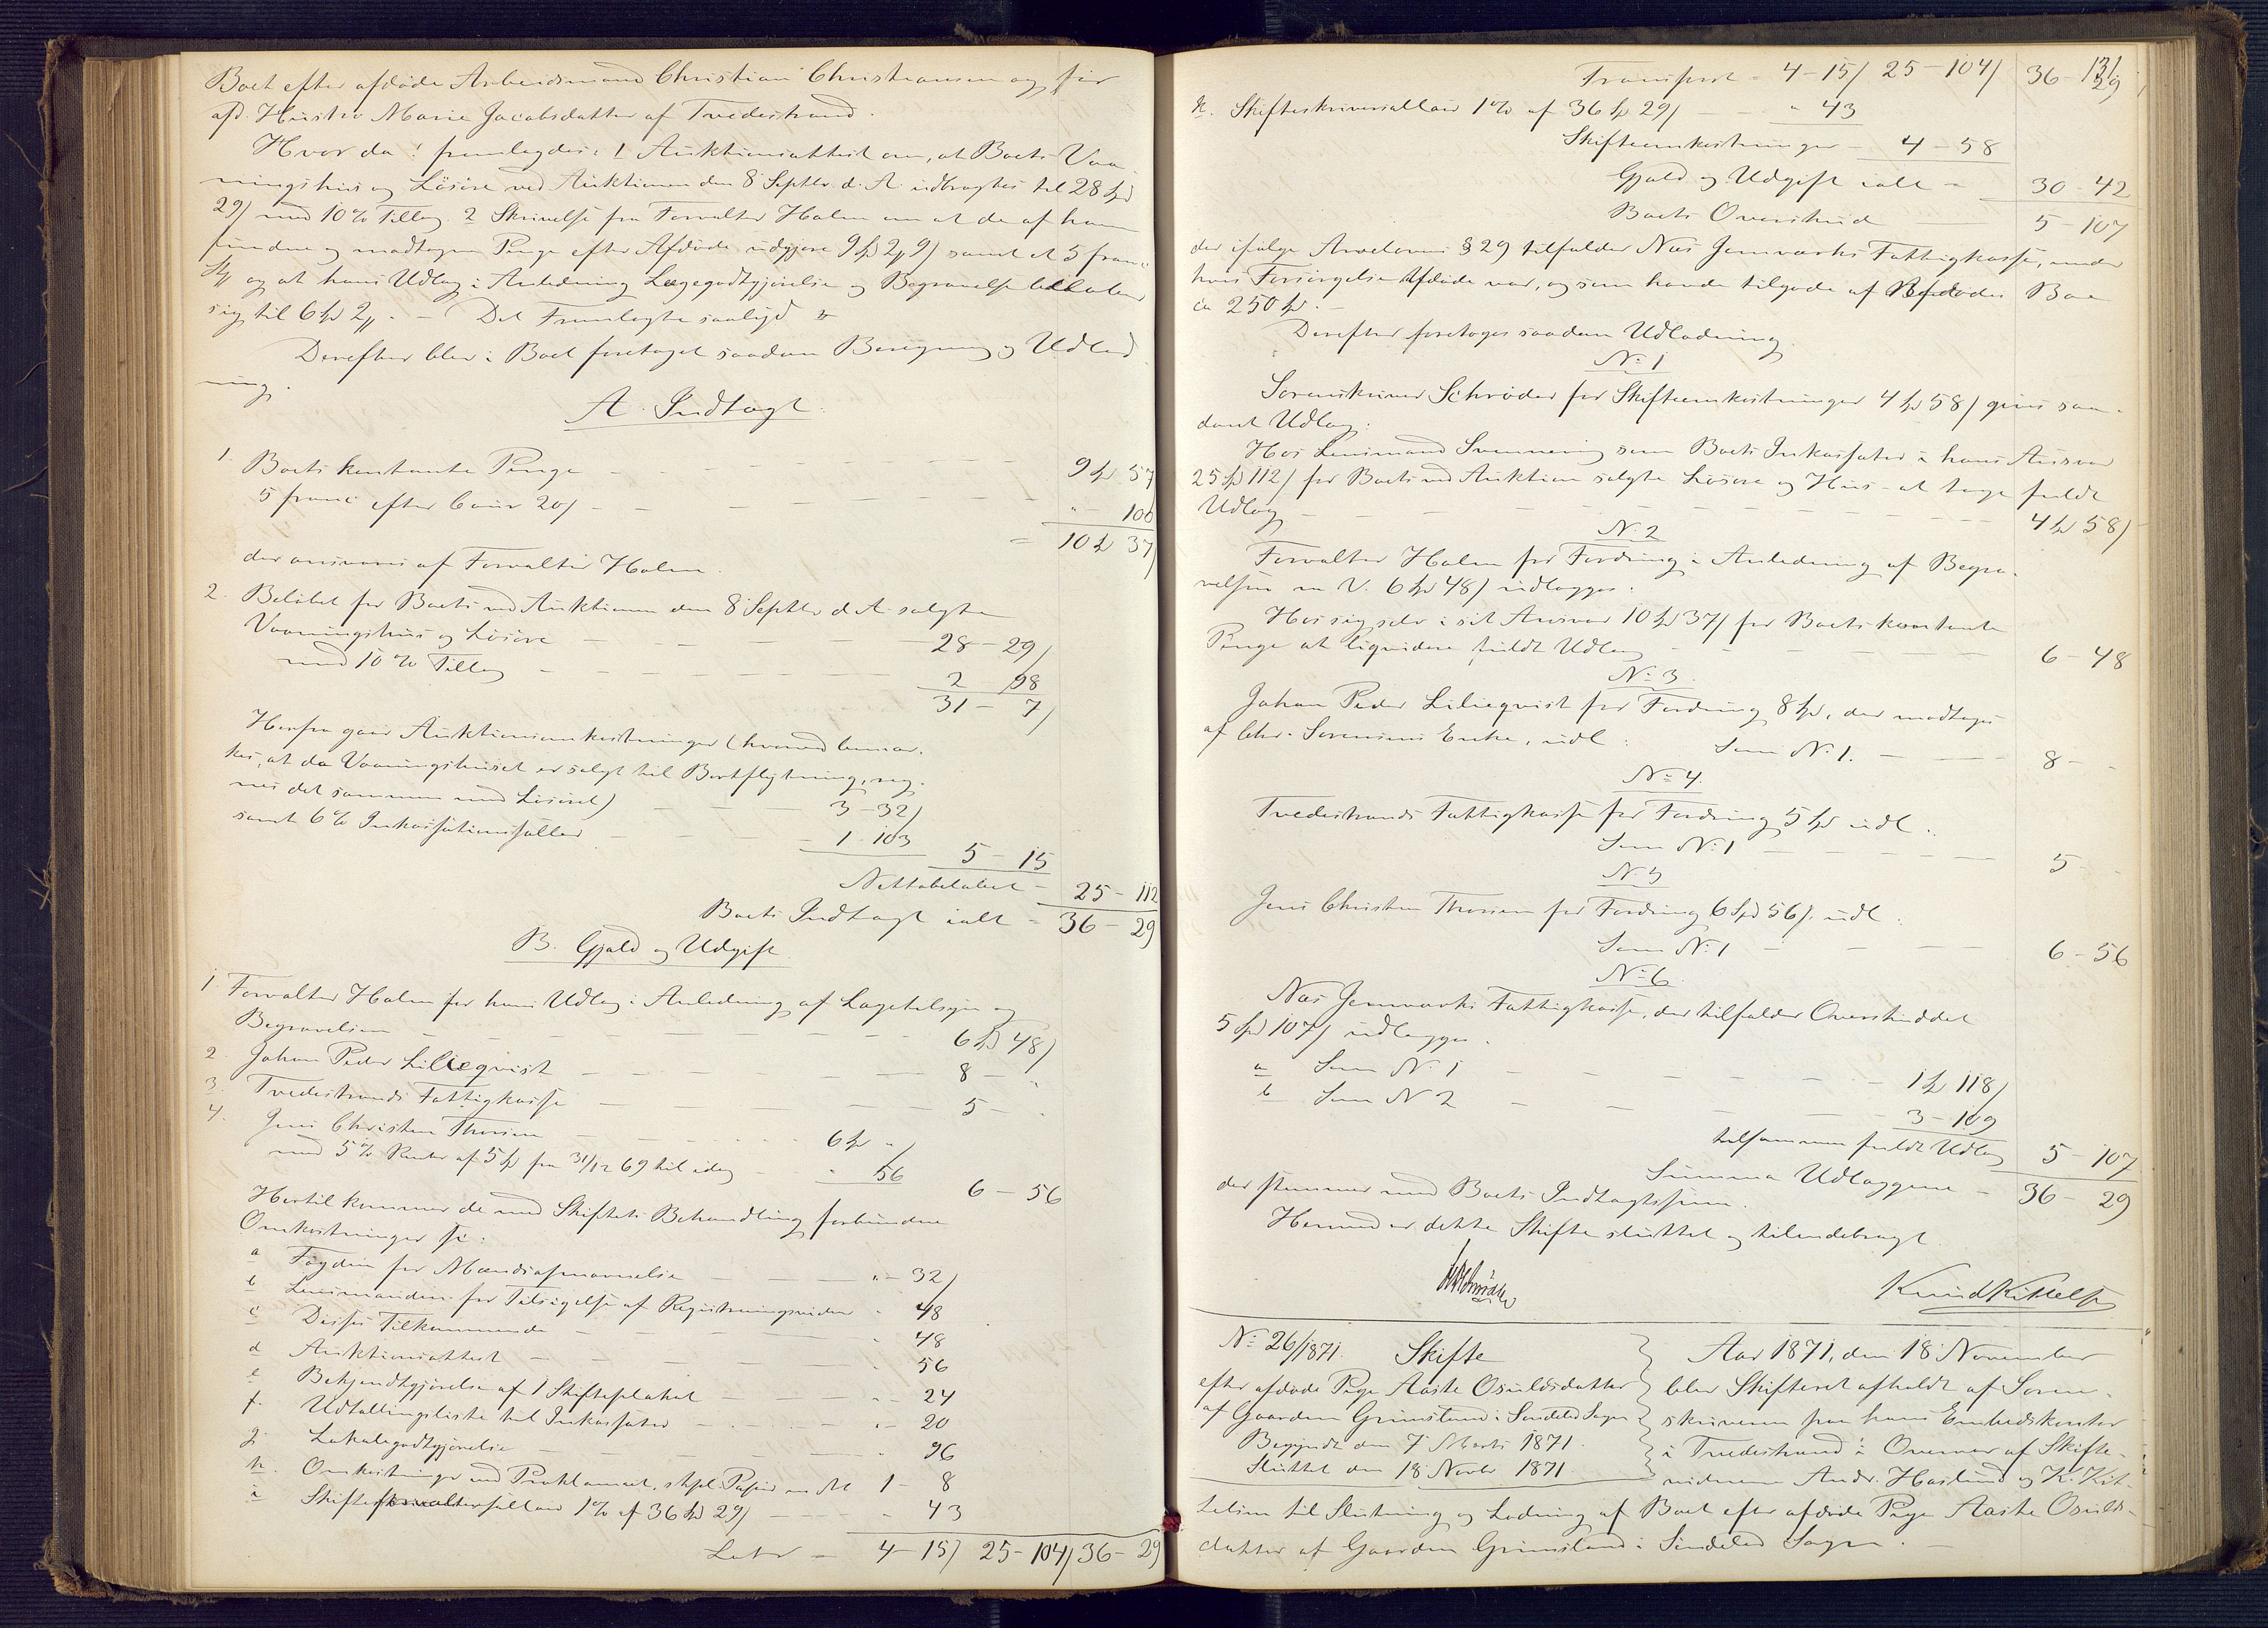 Boet efter afdøde Arbeidsmand Christian Christiansen og før
afd. Hustro Marie Jacobsdatter af Tvedestrand.
Hvor da: fremlagdes: 1 Auktionsattest om, at Boets Vaa-
ningshus og Løsøre ved Auktionen den 8 Septbr. d. A. udbragtes til 28 Spd
29 / med 10 % Tillæg. 2 Skrivelse fra Forvalter Holm om at de af ham
fundne og modtagne Penge efter Afdøde udgjøre 9 Spd 2 # 9 / samt et 5 franc
St. og at hans Udlæg i Anledning Lægegodtgjørelse og Begravelse beløber
sig til 6 Spd 2 #. – Det Fremlagte saalyd.
Derefter blev i Boet foretaget saadan Beregning og Udlod-
ning.
A. Indtægt.
1. Boets kontante Penge – – – 9 Spd 57
5 franc efter Cours 20 / – – – " 100
= 10 Spd 37 /
der ansvares af Forvalter Holm.
2. Beløbet for Boets ved Auktionen den 8 Septbr d. A. solgte
Vaaningshus og Løsøre – – – 28 – 29 /
med 10 % Tillæg – – – 2 98
31 – 7 /
Herfra gaar Auktionsomkostninger (hvorved bemær-
kes, at da Vaaningshuset er solgt til Bortflytning, reg-
nes det sammen med Løsøret) – – 3 – 32 /
samt 6 % Inkassationssallær – – 1 – 103
5 – 15
Nettobeløbet – 25 – 112
Boets Indtægt ialt = 36 – 29
B. Gjæld og Udgift.
1. Forvalter Holm for hans Udlæg i Anledning af Lægetilsyn og
Begravelsen – – – 6 Spd 48 /
2. Johan Peder Lilieqvist – – – 8 – "
3. Tvedestrands Fattigkasse – – – 5 – "
4. Jens Christen Thorsen – – – 6 Spd " /
med 5 % Renter af 5 Spd fra 31/12 69 til idag – " 56
6 – 56
Hertil kommer de med Skiftets Behandling forbundne
Omkostninger s:
a Fogden for Mændsopnævnelse – – " – 32 /
b Lensmanden for Tilsigelse af Registreringsvidner " 48
c Disses Tilkommende – – – " 48
d Auktionsattest – – – " 56
e Bekjendtgjørelse af 1 Skifteplakat – – " – 24
f. Udtællingsliste til Inkassator – – " – 20
g. Lokalegodtgjørelse – – – " 96
h. Omkostninger ved Proklamaet, stpl. Papir m. M. 1 – 8
i Skifteforvaltersallær 1 % af 36 Spd 29 / – – – " 43
Latr = 4 – 15 / 25 – 104 / 36 – 29
131
Transport = 4 – 15 / 25 – 104 / 36 – 29
k. Skifteskriversallær 1 % af 36 Spd 29 / – – " 43
Skifteomkostninger – 4 – 58
Gjæld og Udgift ialt = 30 – 42
Boets Overskud – – 5 – 107
der ifølge Arveloven § 29 tilfalder Næs Jernværks Fattigkasse, under
hvis Forsørgelse Afdøde var, og som havde tilgode af Afdødes Bo
ca 250 Spd. –
Derefter foretoges saadan Udlodning.
No 1
Sorenskriver Schrøder for Skifteomkostninger 4 Spd 58 / gives saa-
dant Udlæg:
Hos Lensmand Svenning som Boets Inkassator i hans Ansvar
25 Spd 112 / for Boets ved Auktion solgte Løsøre og Hus – at tage fuldt
Udlæg – – – 4 Spd 58 /
No 2
Forvalter Holm for Fordring i Anledning af Begra-
velsen m. V. 6 Spd 48 / udlægges:
Hos sig selv i sit Ansvar 10 Spd 37 / for Boets kontante
Penge at liqvidere fuldt Udlæg – – – 6 – 48
No 3.
Johan Peder Lilieqvist for Fordring 8 Spd, der modtages
af Sorensens Enke, udl: Som No 1. – – 8 – "
No 4.
Tvedestrands Fattigkasse for Fordring 5 Spd udl:
Som No 1 – – – 5 – "
No 5
Jens Christen Thorsen for Fordring 6 Spd 56 /. udl:
Som No 1 – – – 6 – 56
No 6.
Næs Jernværks Fattigkasse, der tilfalder Overskuddet
5 Spd 107 / udlægges:
a Som No 1 – – – 1 Spd 118 /
b Som No 2 – – – 3 – 109
tilsammen fuldt Udlæg 5 – 107
Summa Udlæggene = 36 – 29
der stemmer med Boets Indtægtssum.
Hermed er dette Skifte sluttet og tilendebragt.
Schrøder Knud Kittelsen
No 26/1871. Skifte
efter afdøde Pige Aaste Osuldsdatter
af Gaarden Grimsland i Søndeled Sogn
Begyndt den 7 Marts 1871.
Sluttet den 18 Novbr 1871
Aar 1871, den 18 November
blev Skifteret afholdt af Soren-
skriveren paa hans Embedskontor
i Tvedestrand i Overvær af Skifte-
vidnerne Andr. Haslund og K. Kit-
telsen til Slutning og Lodning af Boet efter afdøde Pige Aaste Osulds-
datter af Gaarden Grimsland i Søndeled Sogn. –